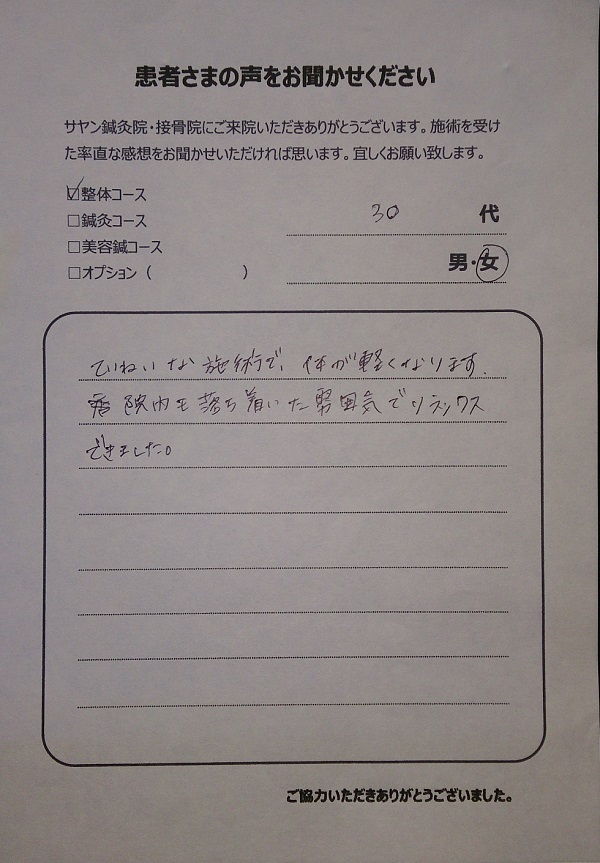 患者さまの声をお聞かせください
サヤン鍼灸院・接骨院にご来院いただきありがとうございます。施術を受け
た率直な感想をお聞かせいただければ思います。宜しくお願い致します。
☑整体コース
□鍼灸コース
□美容鍼コース
□オプション（　　　　　　）
30 代
男・女
ていねいな施術で、体が軽くなります。
院内も落ち着いた雰囲気でリラックス
できました。
ご協力いただきありがとうございました。